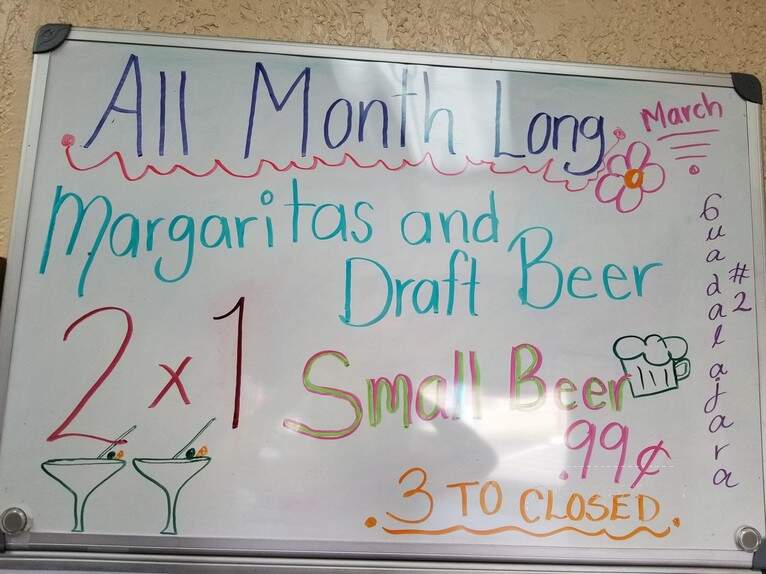 All Month Long
March
Margaritas and
Draft Beer
2 x 1
Small Beer
.99¢
3 TO CLOSED.
Guadalajara
#2